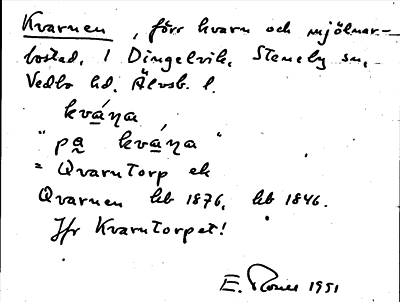 Kvarnen, förr kvarn och mjölnar-
bostad, 1 Dingelvik, Steneby sn,
Vedbo hd, Älvsb. l.
kváṇa
"pa kváṇa"
= Qvarntorp ek
Qvarnen kb 1876, kb 1846.
Jfr Kvarntorpet!
E. 1951